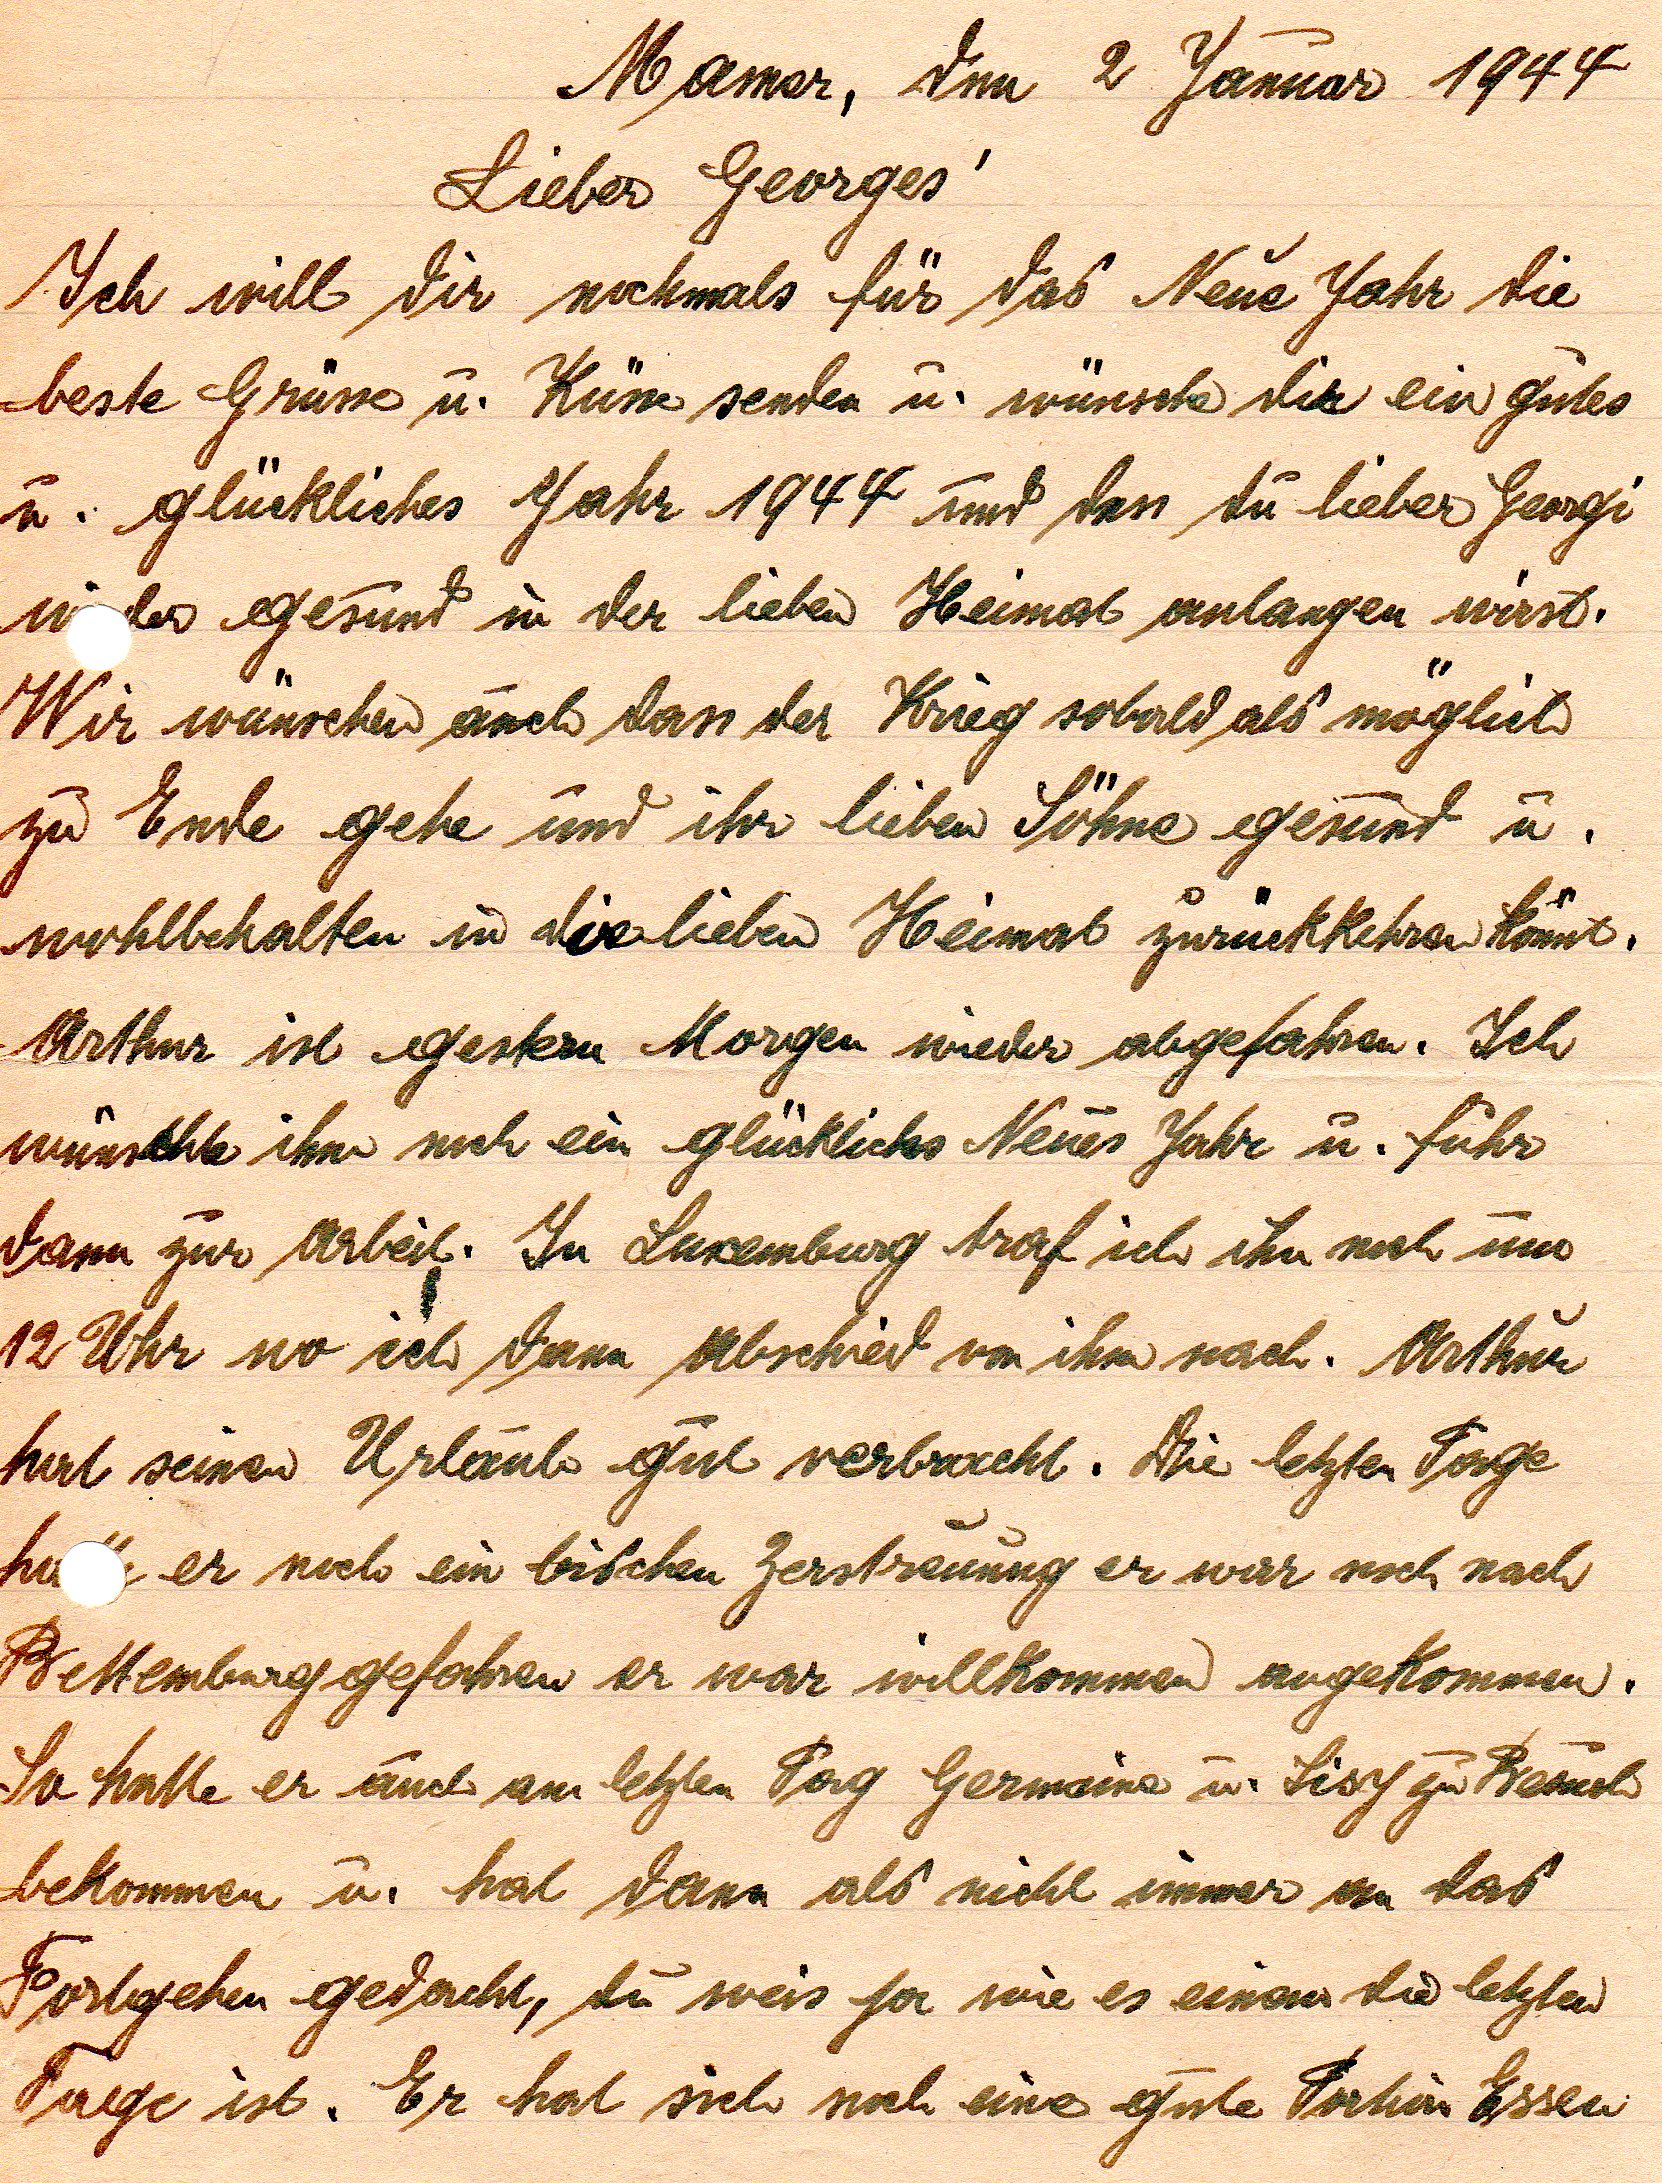 Mamer, den 2 Januar 1944
Lieber Georges'
Ich will dir nochmals für das Neue Jahr die
beste Grüsse u. Küsse senden u. wünsche dir ein gutes
u. glückliches Jahr 1944 und dass du lieber Georgi
wieder gesund in der lieben Heimat anlangen wirst.
Wir wünschen auch dass der Krieg sobald als möglich
zu Ende gehe und ihr lieben Söhne gesund u.
wohlbehalten in die lieben Heimat zurückkehren könnt.
Arthur ist gestern Morgen wieder abgefahren. Ich
wünschte ihm noch ein glückliches Neues Jahr u. fuhr
dann zur Arbeit. In Luxemburg traf ich ihn noch um
12 Uhr wo ich dann Abschied von ihm nach. Arthur
hat seinen Urlaub gut verbracht. Die letzten Tage
hatte er noch ein bischen Zerstreuung er war noch nach
Bettemburg gefahren er war willkommen angekommen.
So hatte er auch am letzten Tag Germaine u. Sisy zu Besuch
bekommen u. hat dann als nicht immer an das
Fortgehen gedacht, du weis ja wie es einem die letzten
Tage ist. Er hat sich noch eine gute Portion Essen